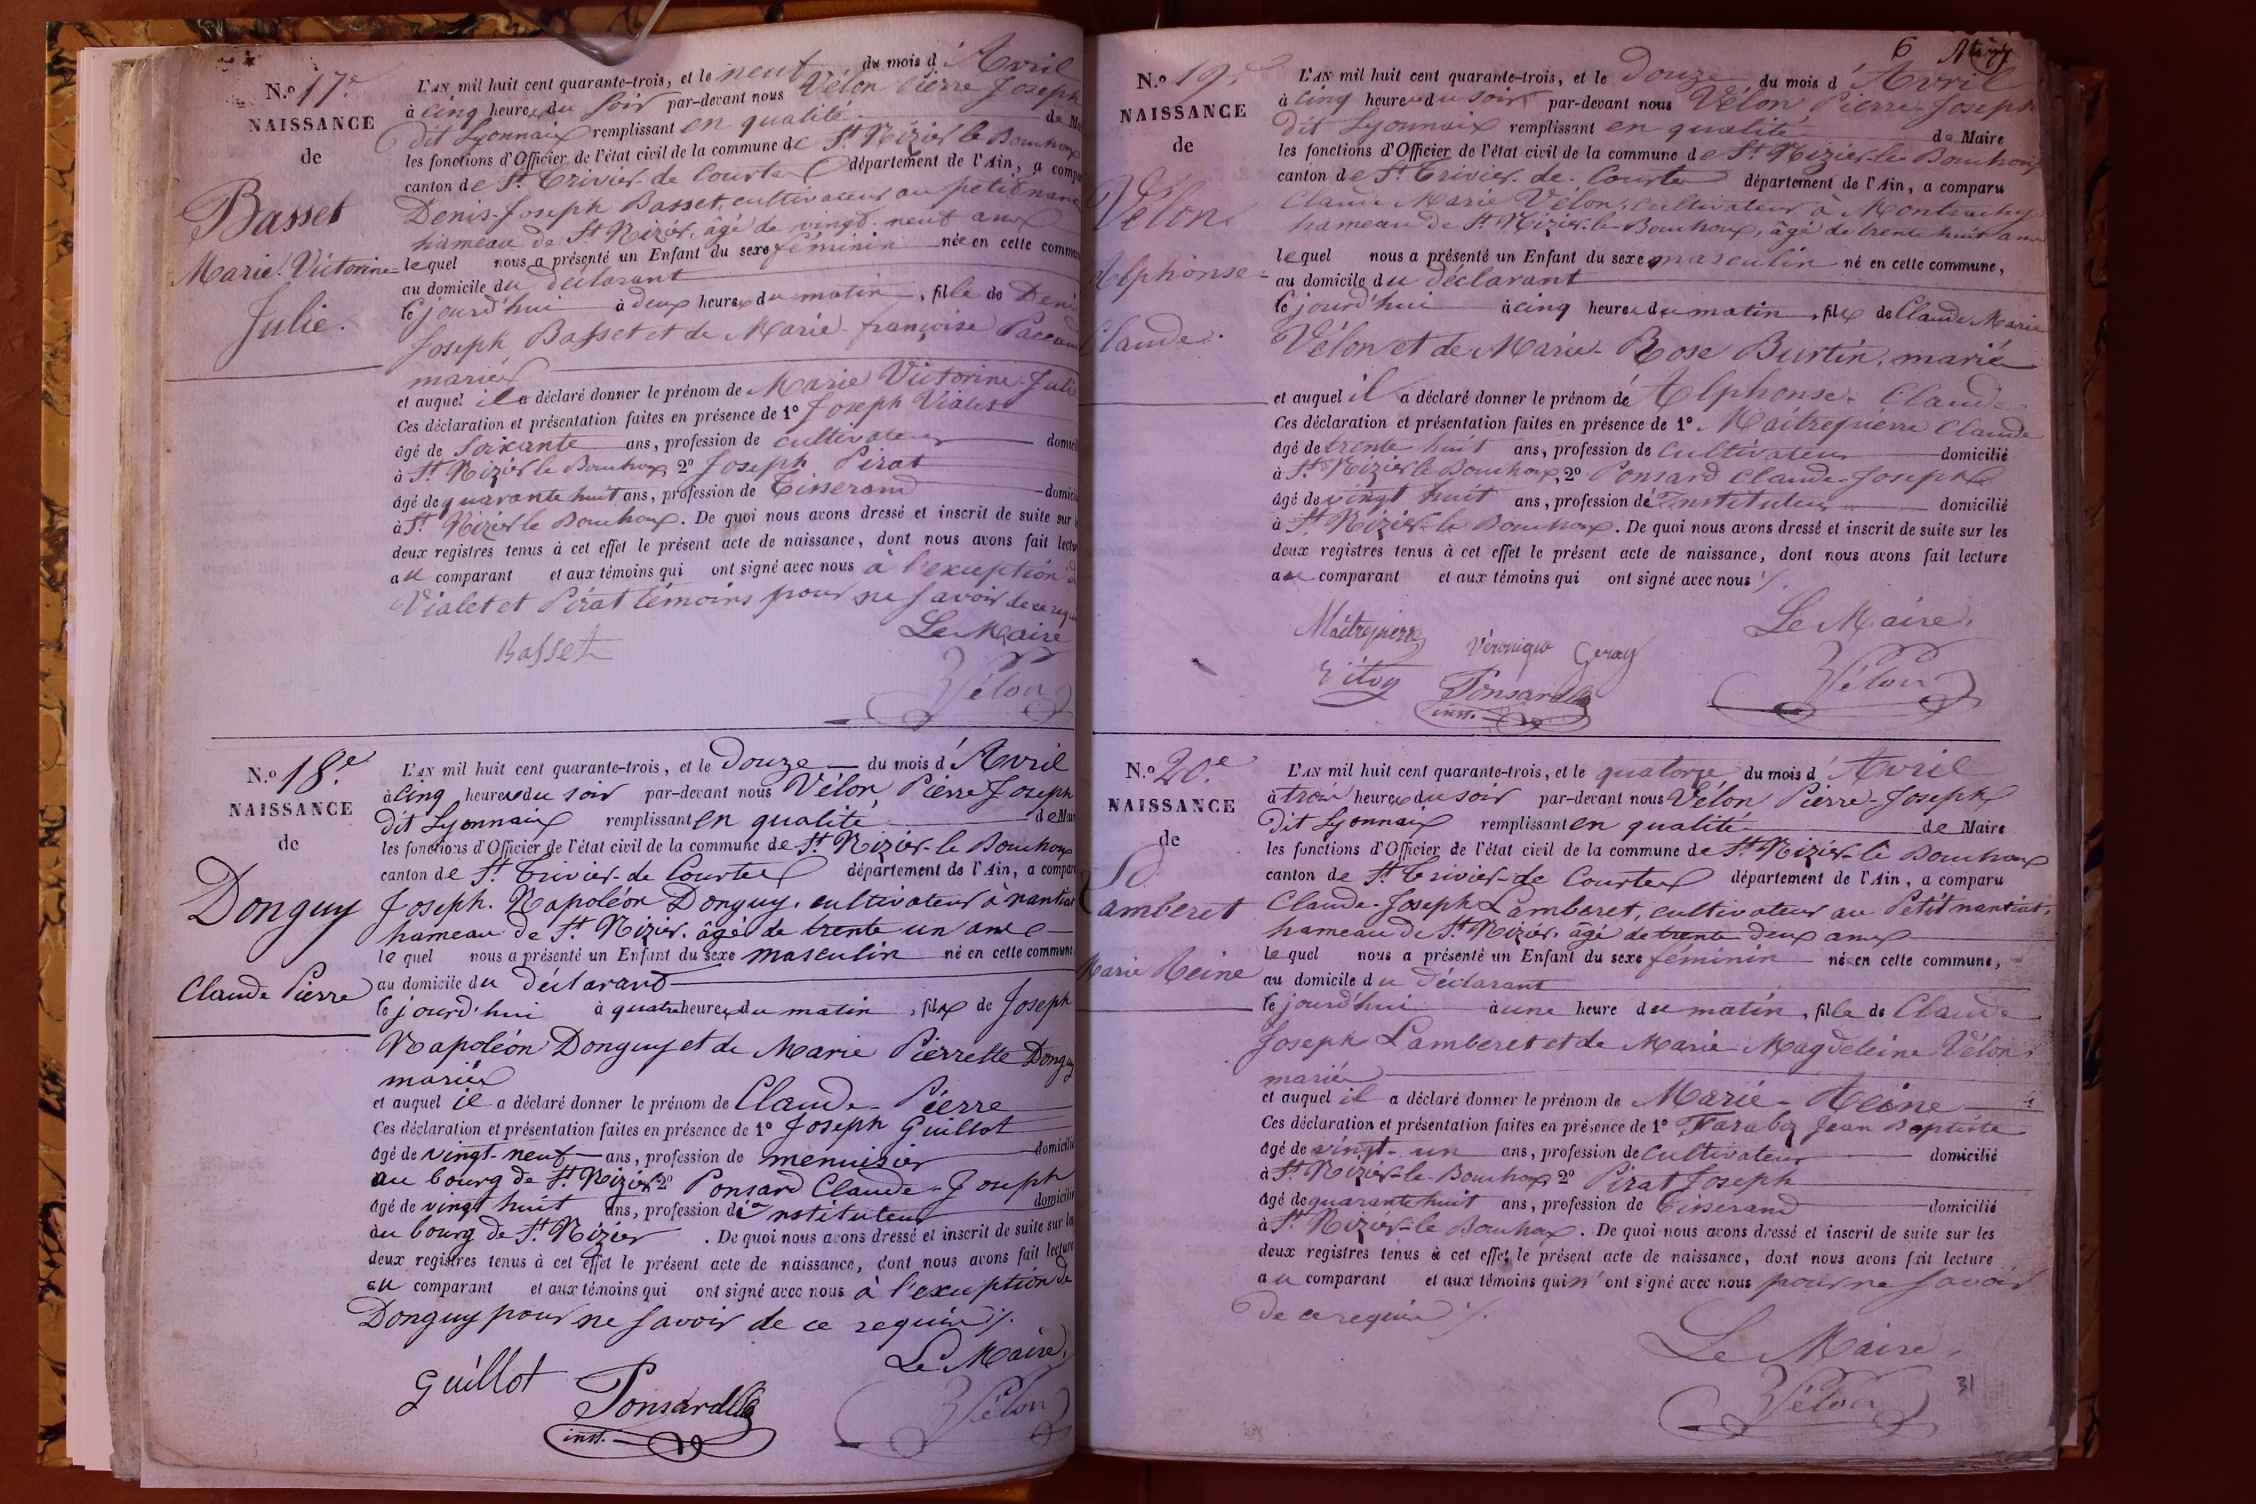 N.o 17.e
NAISSANCE
de
Basset
Marie Victorine
Julie.
L'AN mil huit cent quarante-trois, et le neuf du mois d'Avril
à cinq heures du soir par-devant nous Vélon Pierre Joseph
dit Lyonnais remplissant en qualité de Ma
les fonctions d'Officier de l'état civil de la commune de St Nizier le Bouchoux
canton de St Trivier de Courtes département de l'Ain, a compa
Denis-Joseph Basset, cultivateur au petit nanc
hameau de St Nizier, âgé de vingt-neuf ans
lequel nous a présenté un Enfant du sexe féminin née en cette commun
au domicile du déclarant
ce jourd'hui à deux heures du matin, fille de Deni
Joseph Basset et de Marie françoise Paccau
mariés
et auquel il a déclaré donner le prénom de Marie Victorine-Julie
Ces déclaration et présentation faites en présence de 1o Joseph Vialet
âgé de soixante ans, profession de cultivateur domicil
à St Nizier le Bouchoux, 2o Joseph Pirat
âgé de quarante huit ans, profession de Tisserand domici
à St Nizier le Bouchoux. De quoi nous avons dressé et inscrit de suite sur
deux registres tenus à cet effet le présent acte de naissance, dont nous avons fait lectu
au comparant et aux témoins qui ont signé avec nous à l'exception d
Vialet et Pirat témoins pour ne savoir de ce requ
Le Maire
Basset
Vélon
N.o 18.e
NAISSANCE
de
Donguy
Claude Pierre
L'AN mil huit cent quarante-trois, et le Douze du mois d'Avril
à cinq heures du soir par-devant nous Vélon, Pierre Joseph
dit Lyonnais remplissant en qualité de Mai
les fonctions d'Officier de l'état civil de la commune de St Nizier-le Bouchoux
canton de St Trivier-de Courtes département de l'Ain, a compar
Joseph. Napoléon Donguy, cultivateur à nantiat
hameau de St Nizier, âgé de trente un ans
lequel nous a présenté un Enfant du sexe masculin né en cette commune
au domicile du déclarant
ce jourd'hui à quatre heures du matin, fils de Joseph
Napoléon Donguy et de Marie Pierrette Donguy
mariés
et auquel il a déclaré donner le prénom de Claude-Pierre
Ces déclaration et présentation faites en présence de 1o Joseph Guillot
âgé de vingt-neuf ans, profession de menuisier domicilié
au bourg de St Nizier 2o Ponsard Claude-Joseph
âgé de vingt huit ans, profession d'instituteur domicilié
au bourg de St Nizier. De quoi nous avons dressé et inscrit de suite sur la
deux registres tenus à cet effet le présent acte de naissance, dont nous avons fait lecture
au comparant et aux témoins qui ont signé avec nous à l'exception de
Donguy pour ne savoir de ce requis ./.
Le Maire,
Guillot
Ponsard
inst.
Vélon
6
N.o 19.e
NAISSANCE
de
Vélon
Alphonse-
Claude.
L'AN mil huit cent quarante-trois, et le Douze du mois d'Avril
à cinq heures du soir par-devant nous Vélon, Pierre-Joseph
dit Lyonnais remplissant en qualité de Maire
les fonctions d'Officier de l'état civil de la commune de St Nizier-le-Bouchoux
canton de St Trivier-de-Courtes département de l'Ain, a comparu
Claude Marie Vélon, cultivateur à
hameau de St Nizier-le-Bouchoux, âgé de trente huit ans
lequel nous a présenté un Enfant du sexe masculin né en cette commune,
au domicile du déclarant
ce jourd'hui à cinq heures du matin, fils de Claude Marie
Vélon et de Marie-Rose Burtin, mariés
et auquel il a déclaré donner le prénom de Alphonse-Claude
Ces déclaration et présentation faites en présence de 1o Maîtrepierre Claude
âgé de trente huit ans, profession de cultivateur domicilié
à St Nizier le Bouchoux, 2o Ponsard Claude-Joseph
âgé de vingt huit ans, profession d'Instituteur domicilié
à St Nizier-le Bouchoux. De quoi nous avons dressé et inscrit de suite sur les
deux registres tenus à cet effet le présent acte de naissance, dont nous avons fait lecture
au comparant et aux témoins qui ont signé avec nous ./.
Le Maire,
Maîtrepierre Véronique Geray
Ponsard
inst.
Vélon
N.o 20.e
NAISSANCE
de
Lamberet
Marie Reine
L'AN mil huit cent quarante-trois, et le quatorze du mois d'Avril
à trois heures du soir par-devant nous Vélon Pierre-Joseph
dit Lyonnais remplissant en qualité de Maire
les fonctions d'Officier de l'état civil de la commune de St Nizier-le Bouchoux
canton de St Trivier-de Courtes département de l'Ain, a comparu
Claude-Joseph Lamberet, cultivateur au Petit nantiat,
hameau de St Nizier, âgé de trente deux ans
lequel nous a présenté un Enfant du sexe féminin née en cette commune,
au domicile du déclarant
ce jourd'hui à une heure du matin, fille de Claude
Joseph Lamberet et de Marie Magdeleine Vélon,
mariés
et auquel il a déclaré donner le prénom de Marie-Reine
Ces déclaration et présentation faites en présence de 1o Faraboz Jean Baptiste
âgé de vingt-un ans, profession de cultivateur domicilié
à St Nizier-le-Bouchoux 2o Pirat Joseph
âgé de quarante huit ans, profession de Tisserand domicilié
à St Nizier-le Bouchoux. De quoi nous avons dressé et inscrit de suite sur les
deux registres tenus à cet effet le présent acte de naissance, dont nous avons fait lecture
au comparant et aux témoins qui n'ont signé avec nous pour ne savoir
de ce requis ./.
Le Maire,
Vélon
31